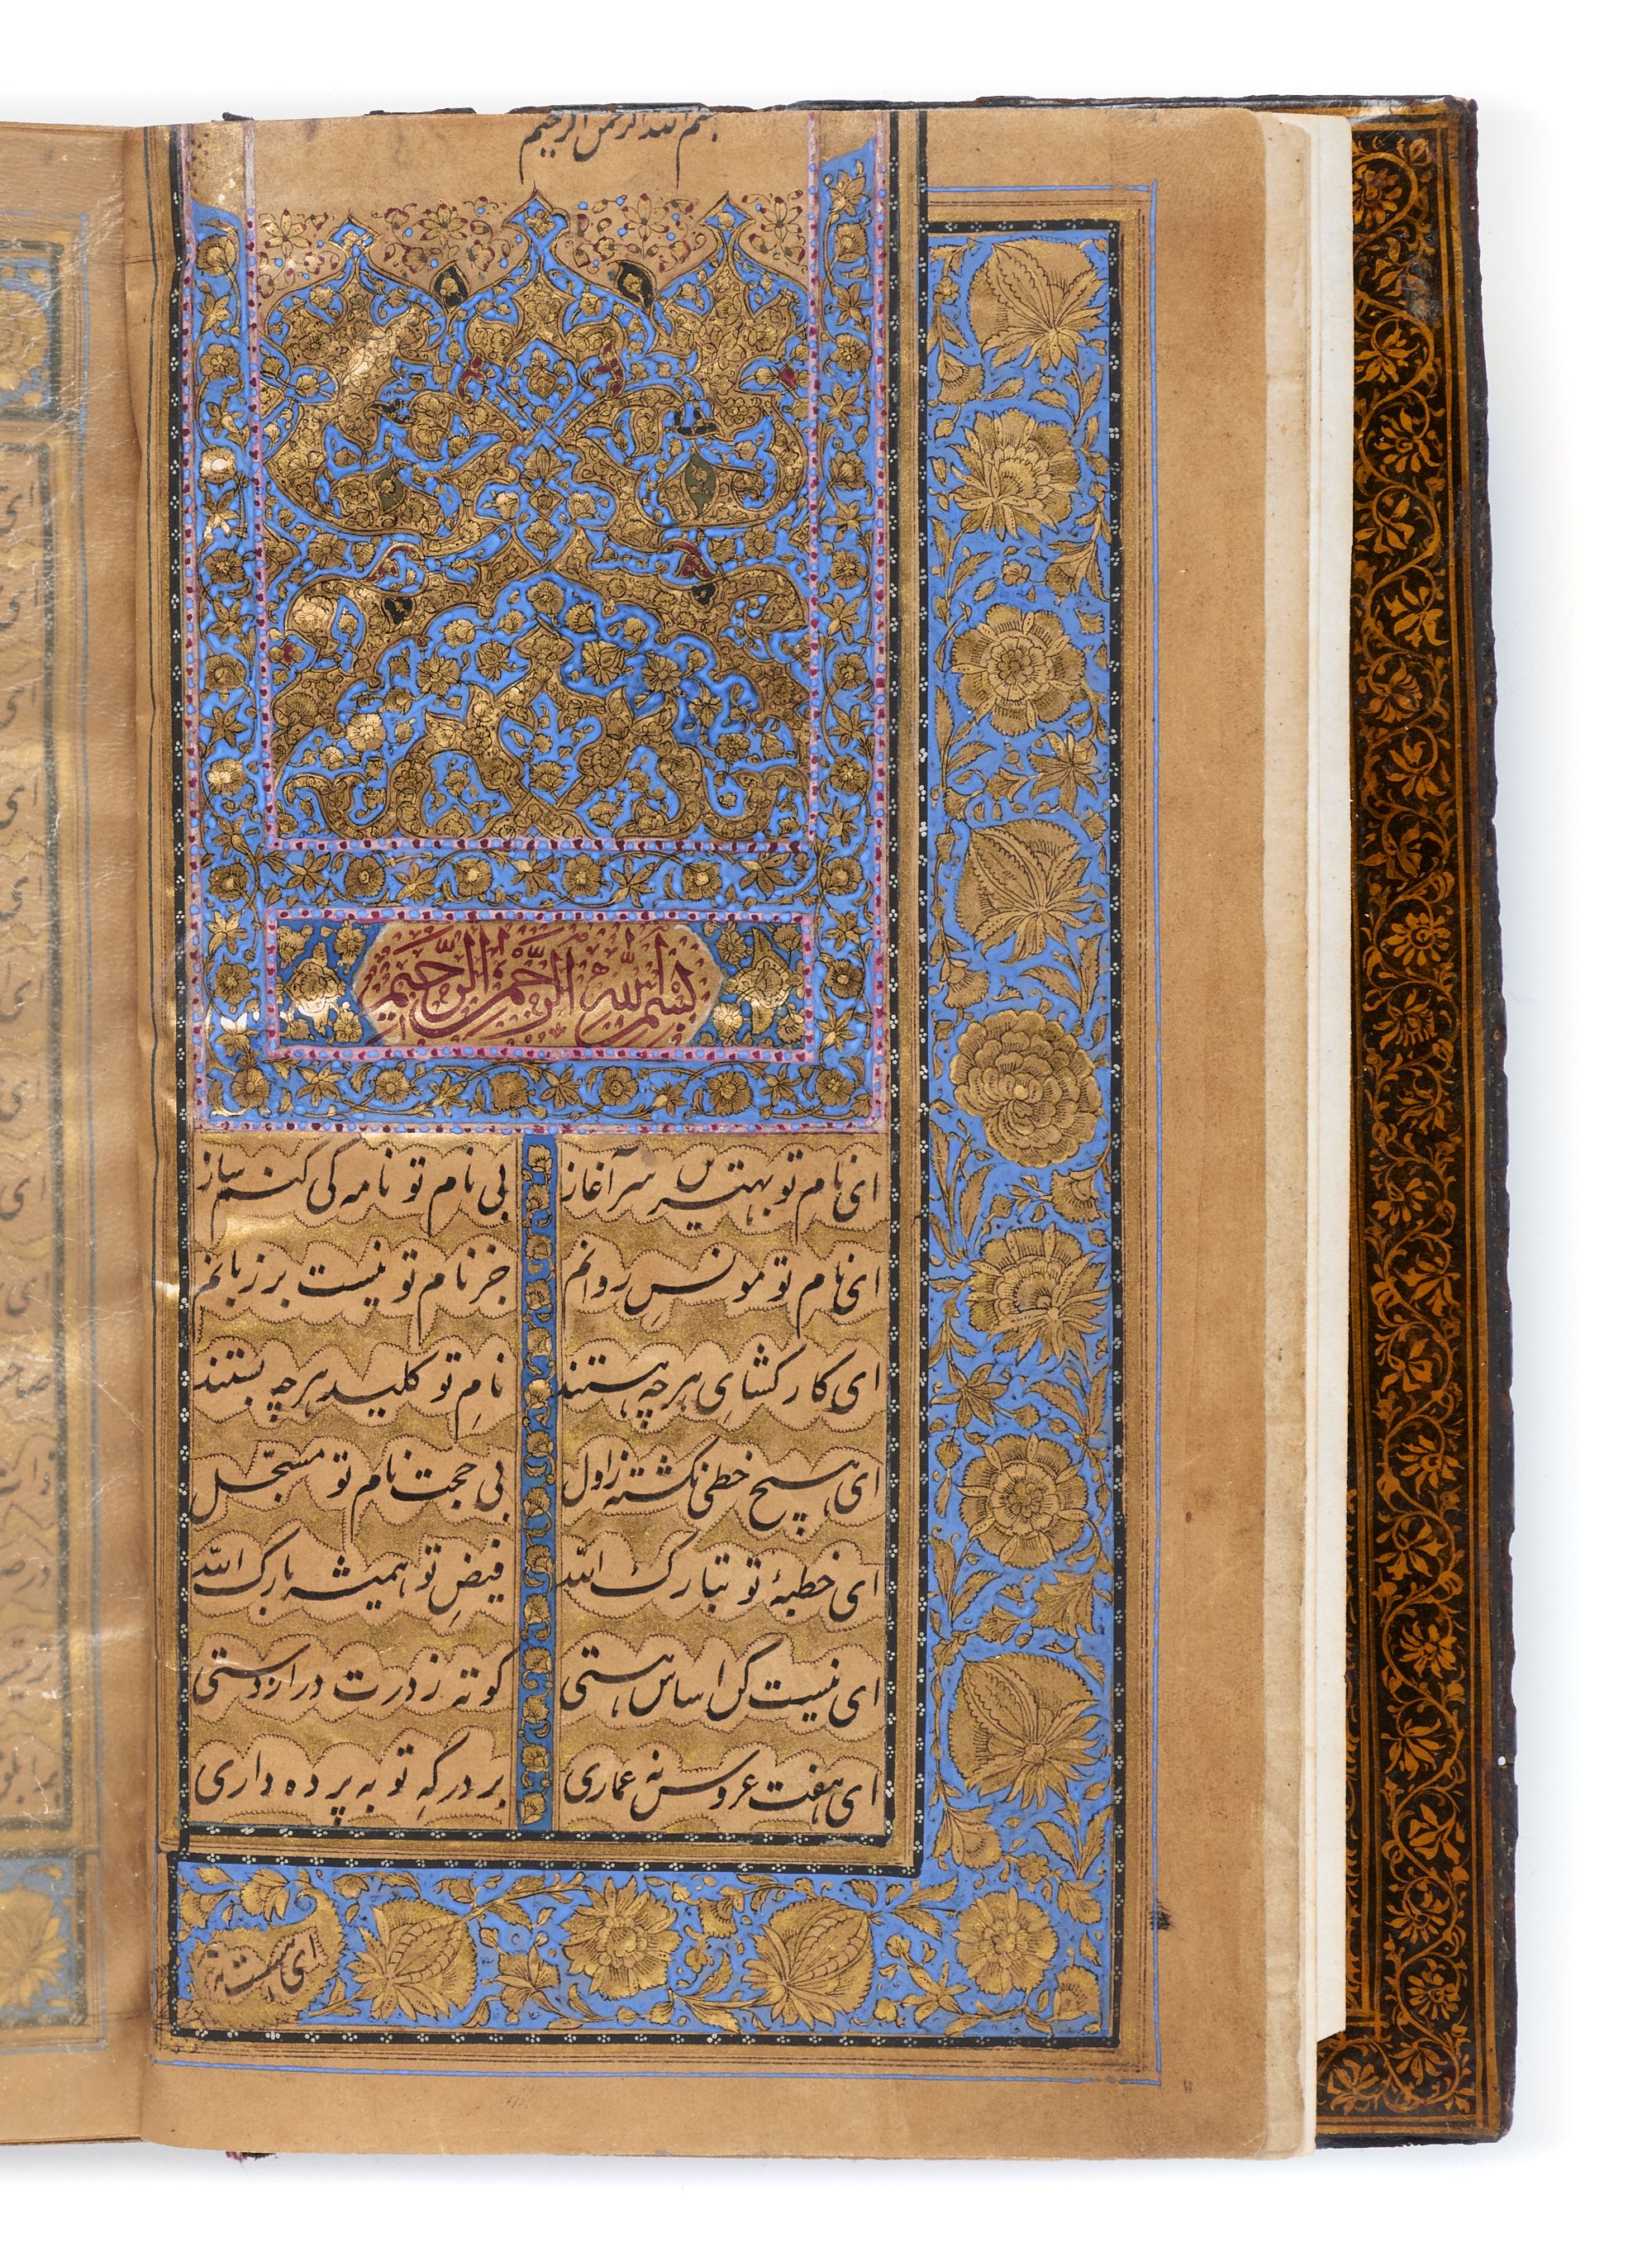 بسم الله الرحمن الرحیم
بِسْمِ اللّٰهِ الرَّحْمٰنِ الرَّحِیْمِ
ای نام تو بهترین سر آغاز بی نام تو نامه کی کنم باز
ای نام تو مونسِ روانم جز نام تو نیست بر زبانم
ای کار کشای هر چه هستند نامِ تو کلید هر چه بستند
ای هیچ خطی نکشته زاول بی حجت نام تو مسجّل
ای خطبهٔ تو تبارک اللّه فیضِ تو همیشه بارک اللّه
ای نیست کن اساس هستی کوته ز درت دراز دستی
ای هفت عروس نه عماری بر درگهِ تو به پرده داری
ای هست نه